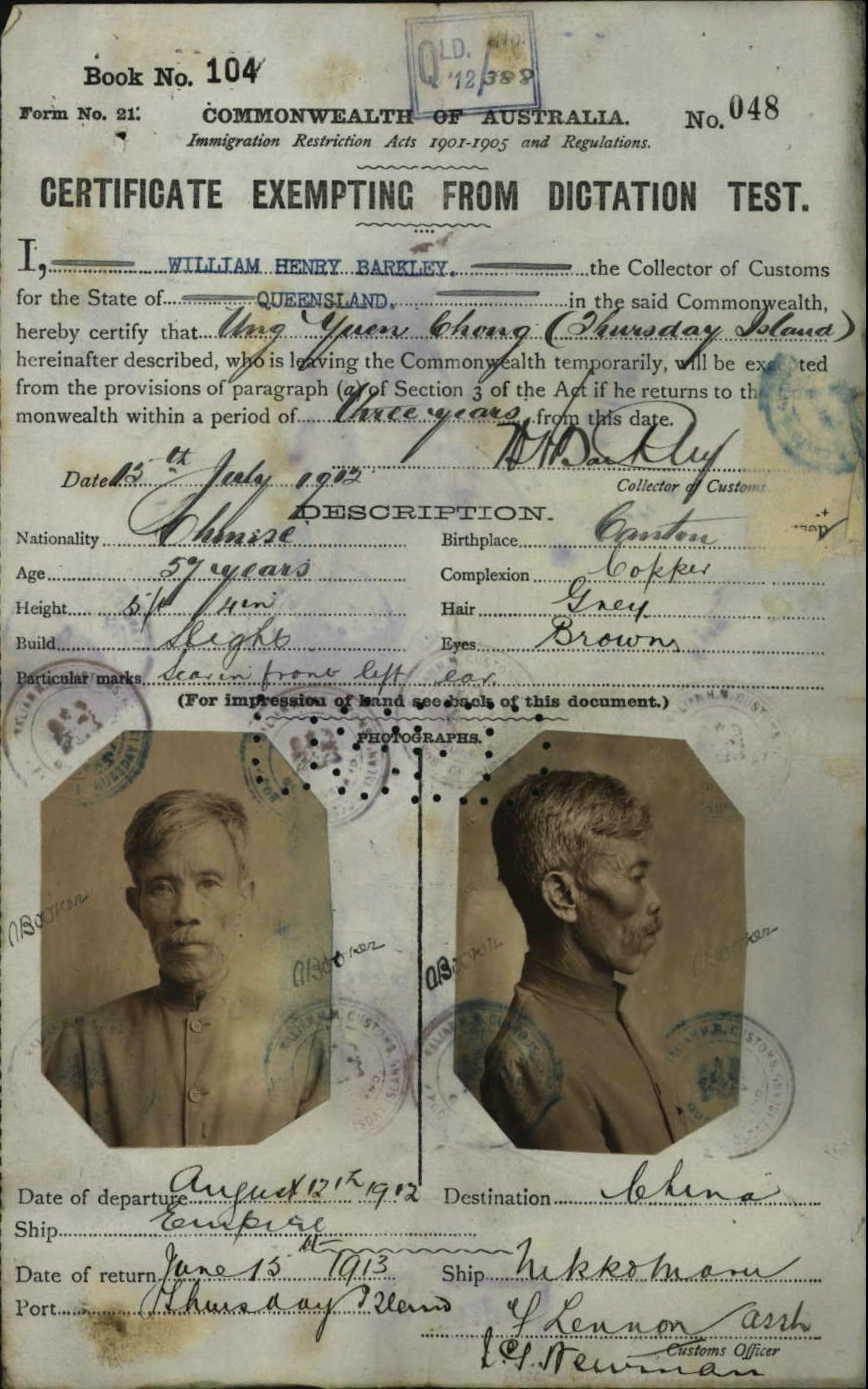 QLD.
'12/388
Book No. 104
Form No. 21.
COMMONWEALTH OF AUSTRALIA.
No. 048
Immigration Restriction Acts 1901-1905 and Regulations.
CERTIFICATE EXEMPTING FROM DICTATION TEST.
I, WILLIAM HENRY BARKLEY. the Collector of Customs
for the State of QUEENSLAND. in the said Commonwealth,
hereby certify that Ung Yuen Chong (Thursday Island)
hereinafter described, who is leaving the Commonwealth temporarily, will be
from the provisions of paragraph (a) of Section 3 of the Act if he returns to
monwealth within a period of three years from this date.
WH Barkley
Date 15th July 1912
Collector of Customs
DESCRIPTION.
Nationality Chinese Birthplace Canton
Age 57 years Complexion Copper
Height 5ft 4in Hair Grey
Build Slight Eyes Brown
Particular marks Scar in front left ear.
(For impression of hand see back of this document.)
PHOTOGRAPHS.
Date of departure August 12th 1912 Destination China
Ship Empire
Date of return June 15th 1913 Ship Nikko Maru
Port Thursday Island
Lennon asst
Customs Officer
Newman